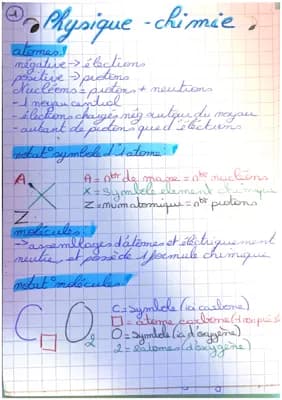 1 Physique - chimie
atomes:
négative → élections
positive → protons
Nucléons = protons + neutrons
- 1 noyau central
- élections chargés nég autour du noyau
- autant de protons que d'électrons
notat° symbole d'1 atome:
A A = nbr de masse = nbr nucléons
X X = symbole élément chimique
Z Z = num atomique = nbr protons
molécules:
→ assemblages d'atomes et électriquement
neutre, et possède 1 formule chimique
notat° molécules:
C = symbole (ici carbone)
C□ O2 □ = atome carbone
O = symbole (ici d'oxygène)
2 = 2 atomes (d'oxygène)